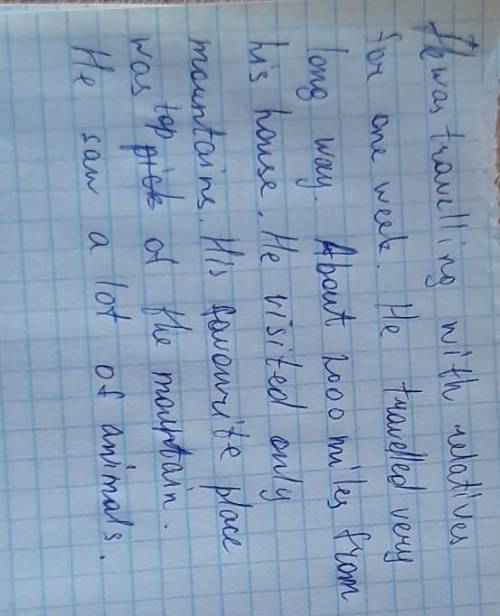 He was travelling with relatives
for one week. He travelled very
long way. About 2000 miles from
his house. He visited only
mountains. His favourite place
was top pick of the mountain.
He saw a lot of animals.